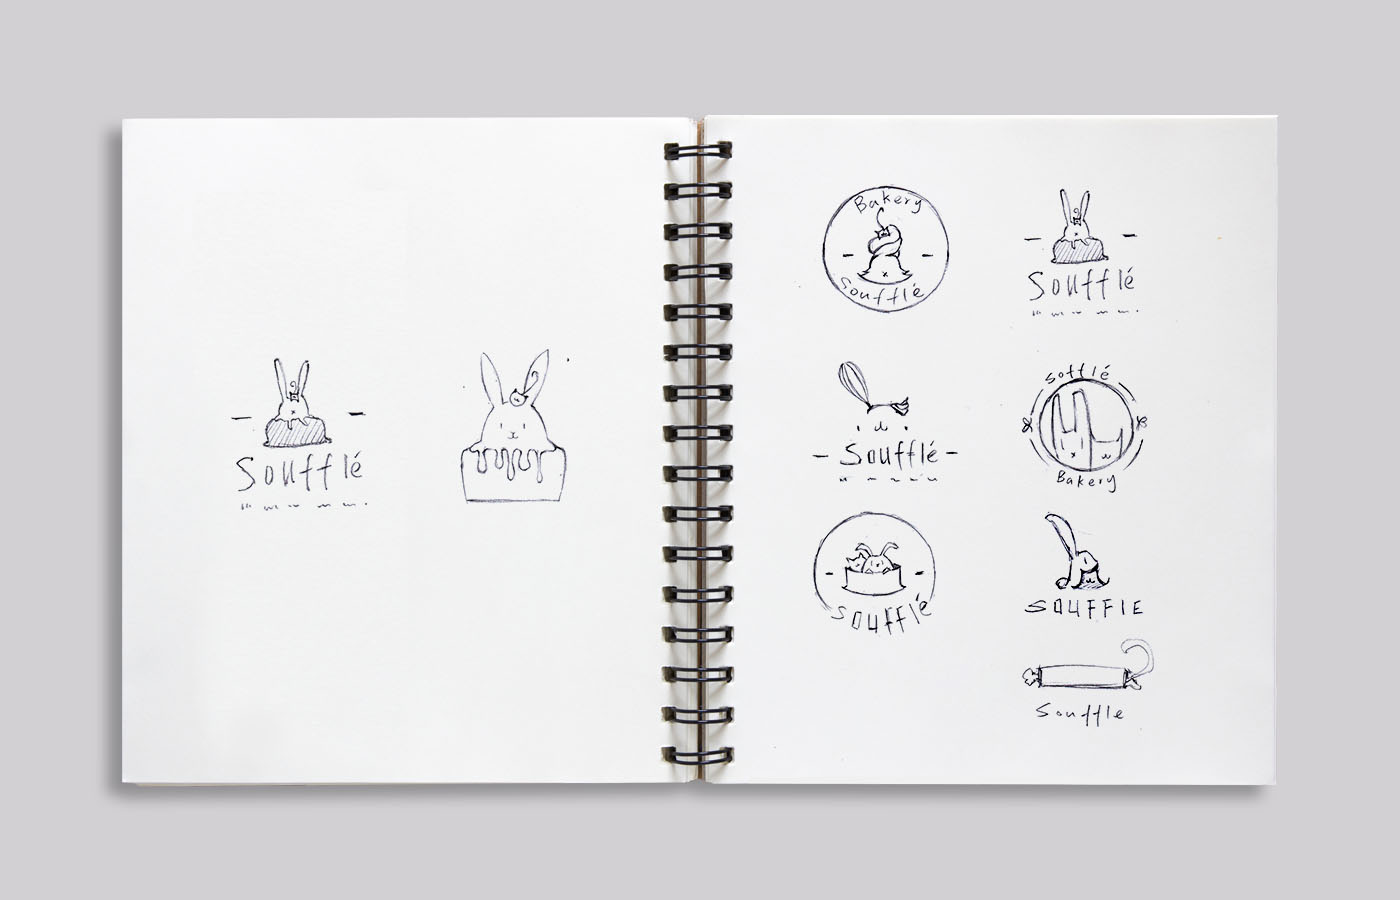 Soufflé
Bakery
Soufflé
Soufflé
Soufflé
Sofflé
Bakery
SOUFFLÉ
SOUFFlE
Souffle